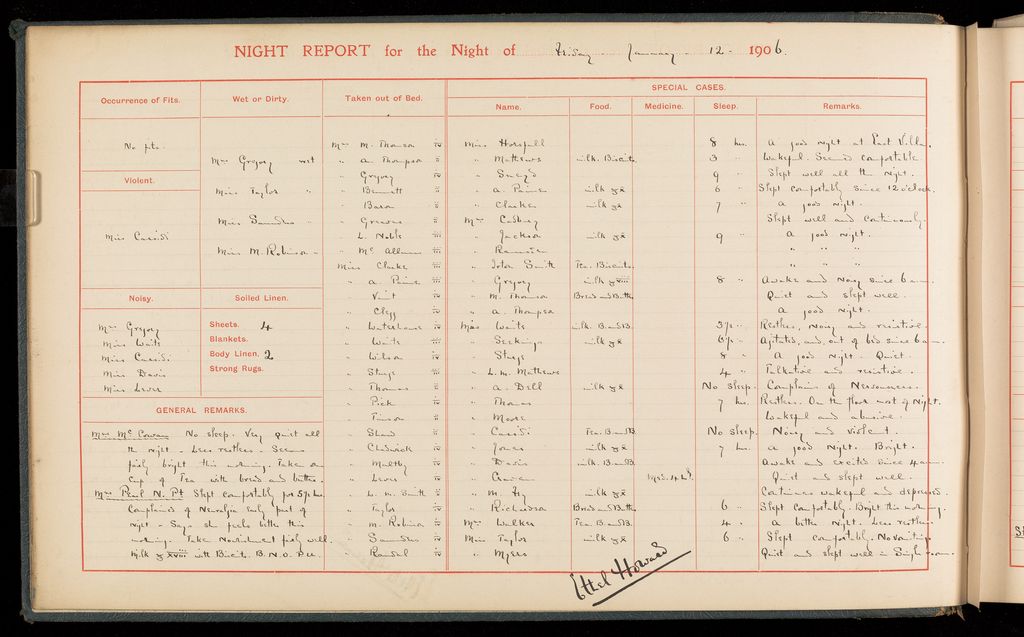 NIGHT REPORT for the Night of Friday - January - 12 - 1906.
Occurrence of Fits.
No pts.
Violent.
Miss Cassidi
Noisy.
Mrs Gregory
Miss Waits
Miss Cassidi
Miss Davis
Miss Lever
Wet or Dirty.
Mrs Gregory wet
Miss Taylor "
Miss Saunders "
Miss M. Robinson "
Soiled Linen.
Sheets. 4
Blankets.
Body Linen. 2
Strong Rugs.
GENERAL REMARKS.
Mrs McCowan No sleep. Very quiet all
the night. Less restless. Seems
fairly bright this morning. Taken one
cup of Tea with bread and butter.
Mrs Paul N. Pt Slept comfortably for 5½ hrs.
Complained of Neuralgia early part of
night. Says she feels better this
morning. Taken Nourishment fairly well.
Milk ℥ xviii with Biscuits. B.N.O. P.u.
Taken out of Bed.
Mrs M. Thomson
" A. Thompson
" Gregory
" Bennett
" Bacon
" Greaves
" L. Noble
" Mc
Miss Clarke
" A. Paine
" Vint
" Clegg
" Waterhouse
" Waits
" Wilson
" Sturge
" Thomas
" Pick
" Shand
" Chadwick
" Maltby
" Lever
" L. M. Smith
" Taylor
" M. Robinson
" Saunders
" Randal
SPECIAL CASES.
Name. Food. Medicine. Sleep. Remarks.
Miss Horsfall 8 hrs. A good night at East Villa.
" Mathews milk. Biscuits. 3 " Wakeful. Seemed comfortable
" 9 " Slept well all the night.
" A. Paine milk ℥x 6 " Slept comfortably since 12 o'clock.
" Clarke milk ℥x 7 " A good night.
Mrs Cadbury Slept well and continuously.
" Jackson milk ℥x 9 " A good night.
" " " "
" Smith Tea. Biscuits. " " "
" Gregory milk ℥xviii 8 " Awake and Noisy since 6 am.
" M. Thomson Bread and Butter Quiet and slept well.
" A. Thompson A good night.
Miss Waits milk. B. and B. 3½ " Restless, Noisy and resistive.
" Seekings milk ℥x 6½ " Agitated, and out of bed since 6 am.
" Sturge 8 " A good night. Quiet.
" L. M. Mathews 4 " Talkative and resistive.
" A. Dell milk ℥x No sleep. Complains of Nervousness.
" Thomas 7 hrs. Restless. On the floor most of night.
" Moore Wakeful and abusive.
" Cassidi Tea. B. and B. No sleep. Noisy and violent.
" Jones milk ℥x 7 hrs. A good night. Bright.
" Davis milk. B. and B. Awake and excited since 4 am.
" Quiet and slept well.
" M. Fry milk ℥x Continues wakeful and depressed.
" Richardson Bread and Butter 6 " Slept comfortably. Bright this morning.
Mrs Walker Tea. B. and B. 4 " A better night. Less restless.
Miss Taylor milk ℥x 6 " Slept comfortably. No vomiting.
" Myers Quiet and slept well in Single room.
Ethel Howard